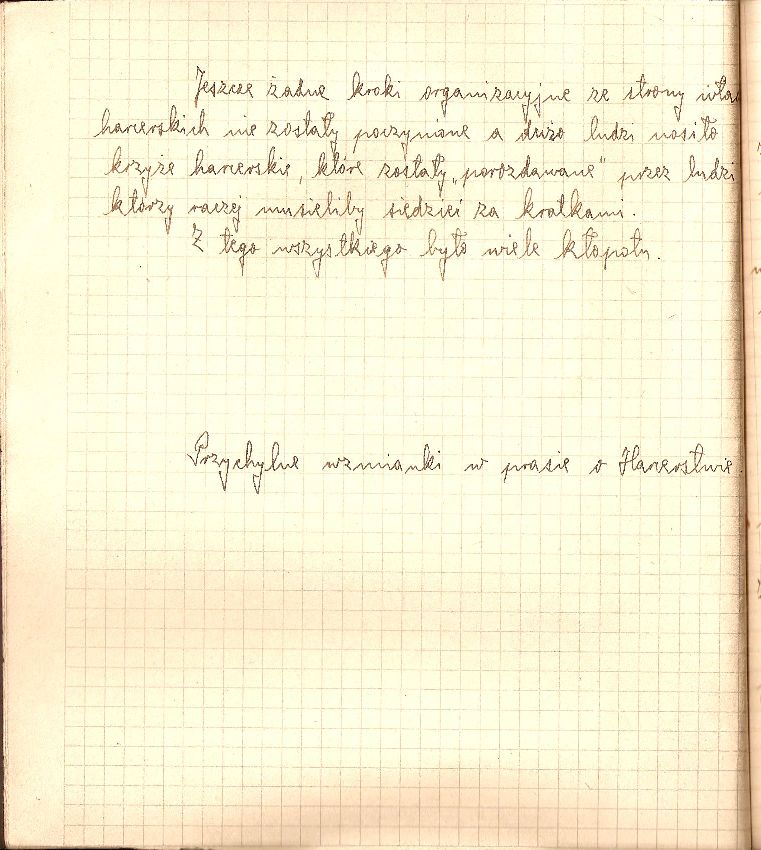 Jeszcze żadne kroki organizacyjne ze strony wład
harcerskich nie zostały poczynione a dużo ludzi nosiło
krzyże harcerskie, które zostały „porozdawane" przez ludzi
którzy raczej musieliby siędzieć za kratkami.
Z tego wszystkiego było wiele kłopotu.
Przychylne wzmianki w prasie o Harcerstwie.